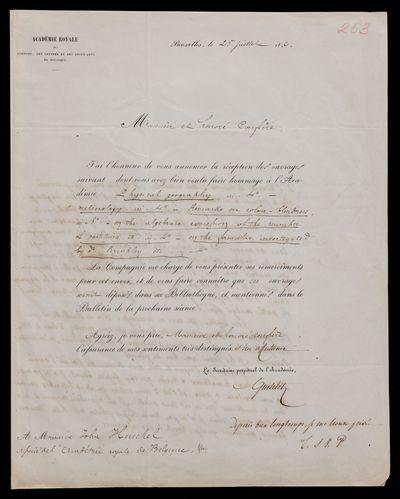 253
ACADÉMIE ROYALE
DES
SCIENCES, DES LETTRES ET DES BEAUX-ARTS
DE BELGIQUE.
Bruxelles, le 25 juillet
Monsieur et honoré Confrère.
J'ai l'honneur de vous annoncer la réception des ouvrages
suivant dont vous avez bien voulu faire hommage à l'Aca-
démie. Physical geography in
meteorology in - Remarks on colour blindness,
in - on the algebraic of the number
of in - on the formulae investigated
by Dr Brinkley
La Compagnie me charge de vous présenter ses remercîments
pour cet envoi, et de vous faire connaître que ouvrage
déposé dans sa Bibliothèque, et mentionné dans le
Bulletin de la prochaine séance.
Agréez, je vous prie, Monsieur et honoré confrère
l'assurance de mes sentiments très distingués.
Le Secrétaire perpétuel de l'Académie,
Quetelet
Depuis bien longtemps, je suis
T. S. V. P.
A Monsieur John Herschel
associé de l'Académie royale de Belgique, &a